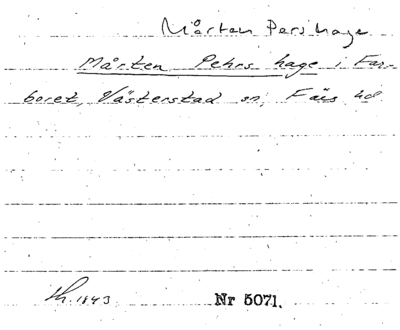 Mårten Pers hage
Mårten Pehrs hage i Far-
boret, Västerstad sn; Färs hd
1843
Nr 5071.